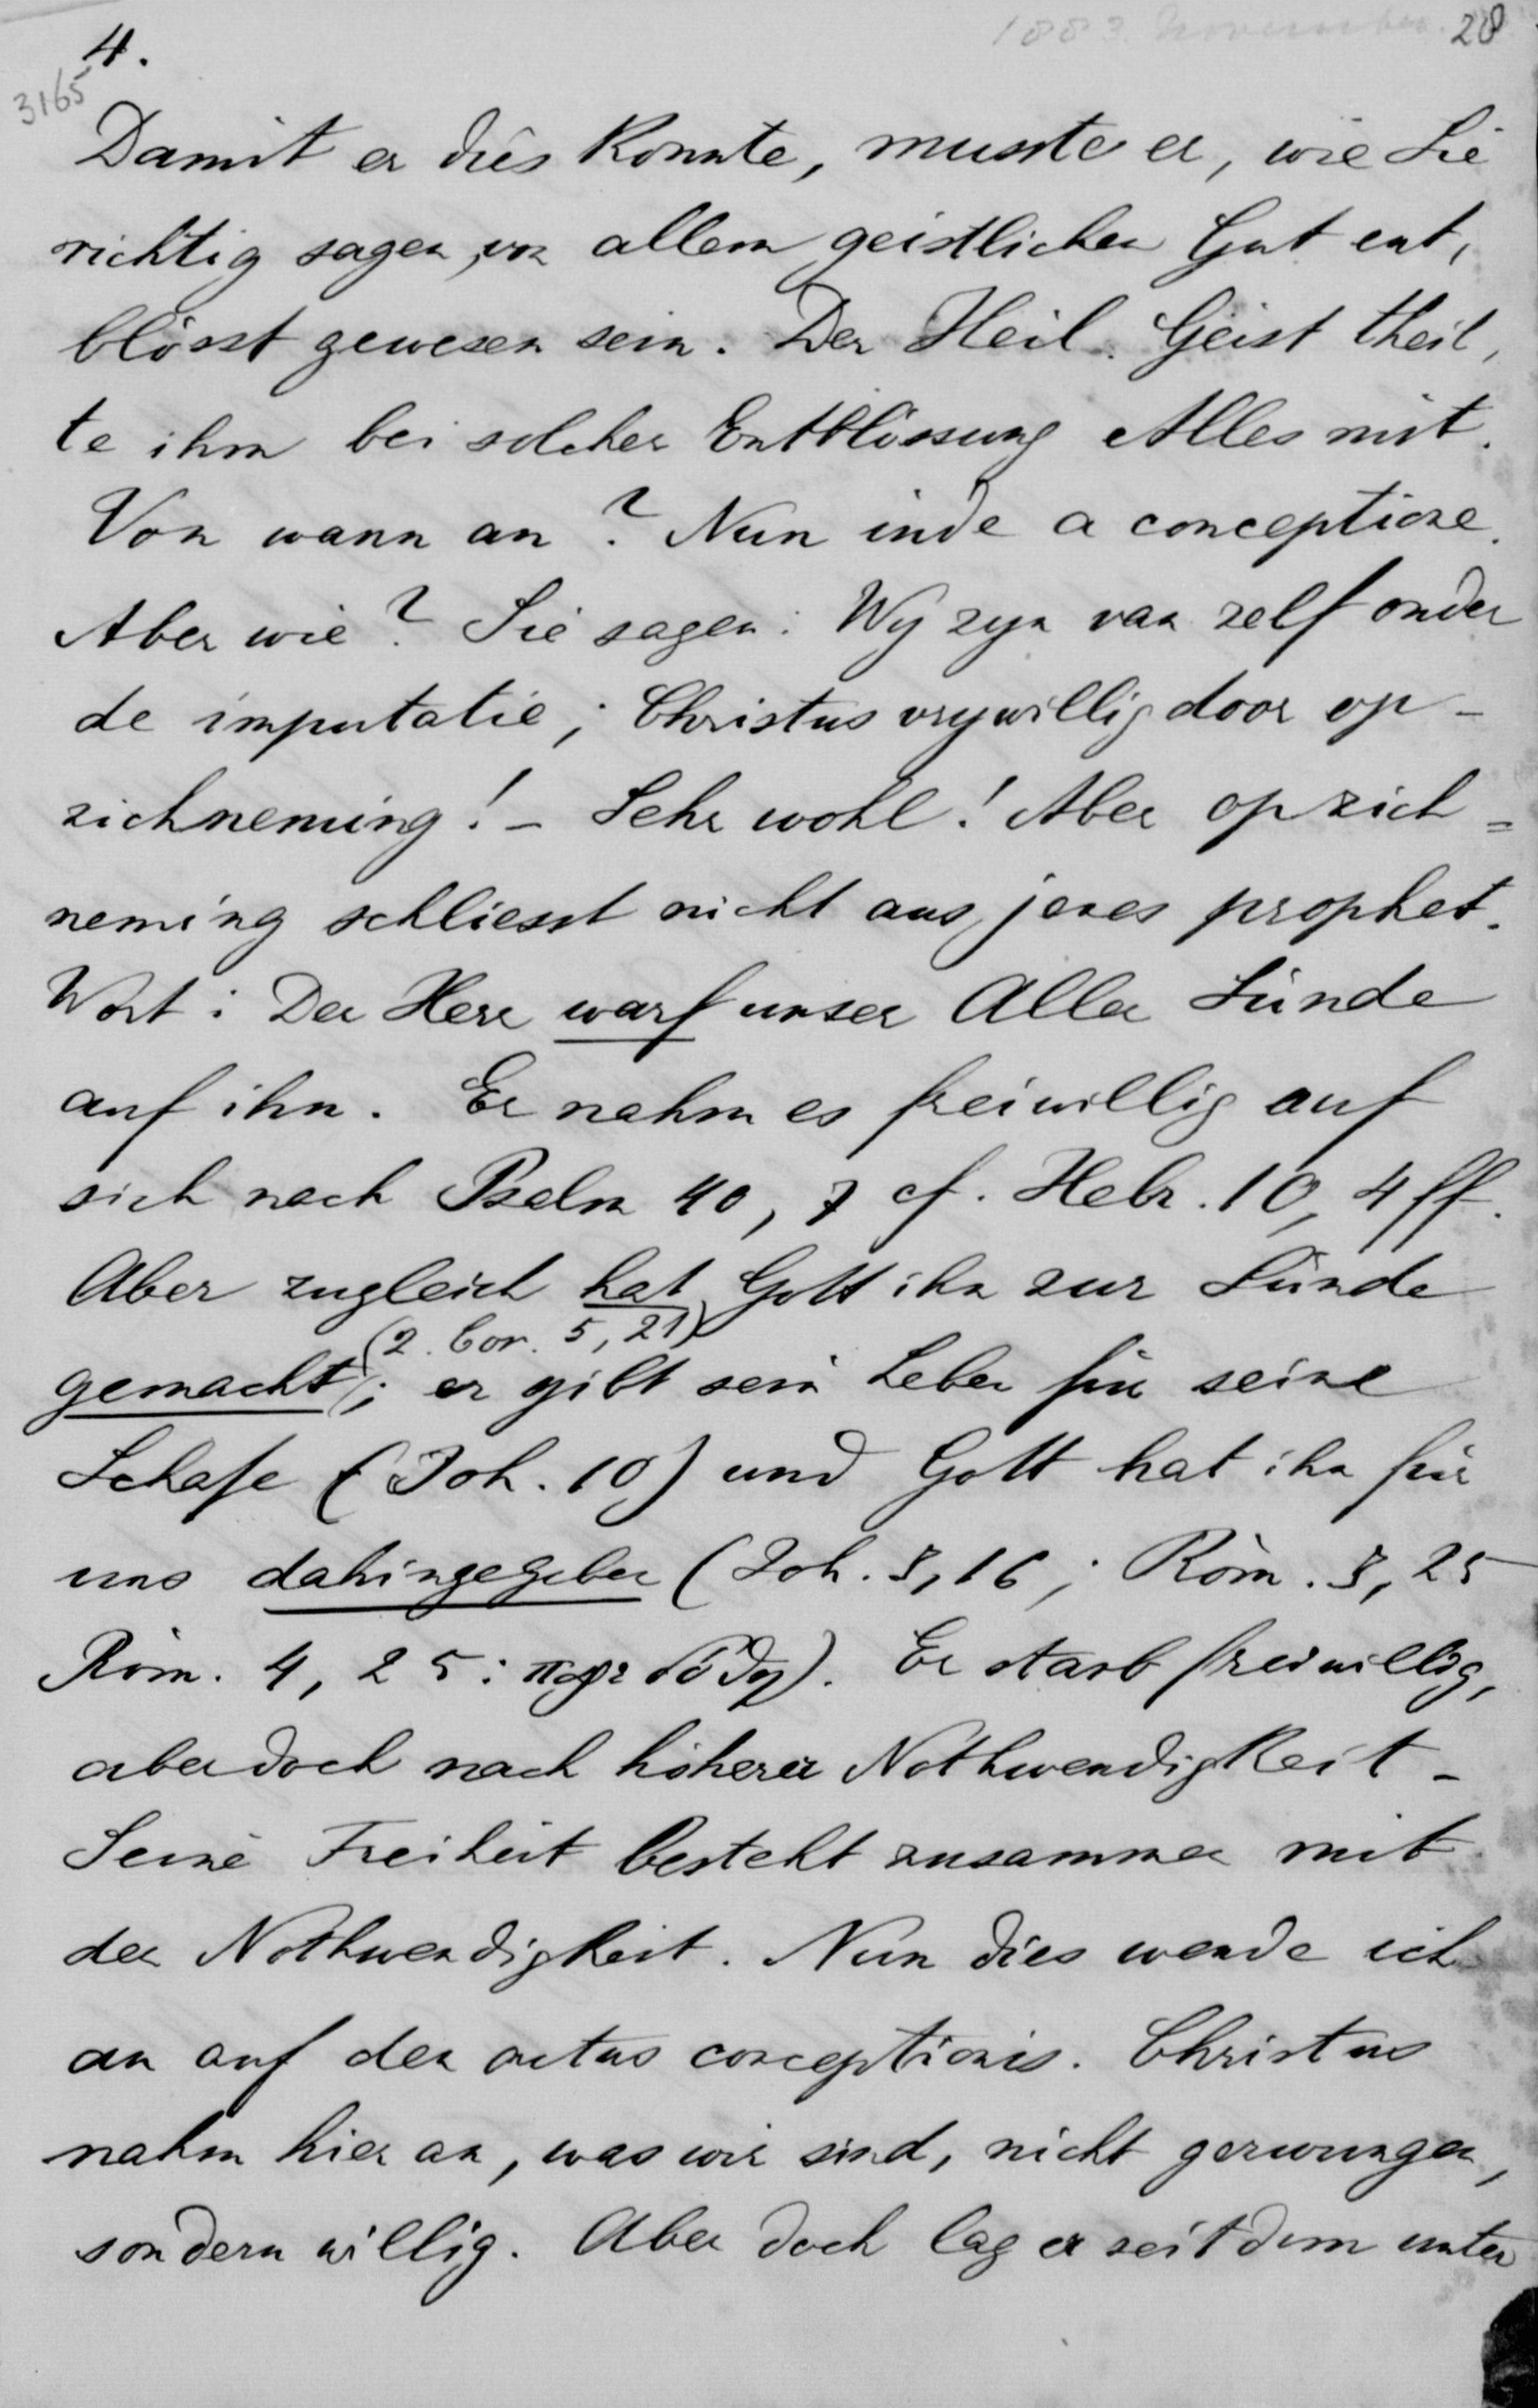 1883. November. 28
4.
3165
Damit er dies konnte, musste er, wie Sie
richtig sagen, von allem geistlichen Gut ent,
blösst gewesen sein. Der Heil. Geist theil,
te ihm bei solcher Entblössung Alles mit.
Von wann an? Nun inde a conceptione.
Aber wie? Sie sagen: Wy zyn van zelf onder
de imputatie; Christus vrywillig door op-
zichneming! – Sehr wohl! Aber opzich=
neming schliesst nicht aus jenes prophet.
Wort: Der Herr warf unser Aller Sünde
auf ihn. Er nahm es freiwillig auf
sich nach Psalm 40, 7 cf. Hebr. 10, 4 ff.
Aber zugleich hat Gott ihn zur Sünde
(2. Cor. 5, 21)
gemacht; er gibt sein Leben für seine
Schafe (Joh. 10) und Gott hat ihn für
uns dahingegeben (Joh. 3, 16; Röm. 3, 25
Röm. 4, 25: παρεδόθη). Er starb freiwillig,
aber doch nach höherer Nothwendigkeit –
Seine Freiheit besteht zusammen mit
der Nothwendigkeit. Nun dies wende ich
an auf den actus conceptionis. Christus
nahm hier an, was wir sind, nicht gezwungen,
sondern willig. Aber doch lag er seitdem unter